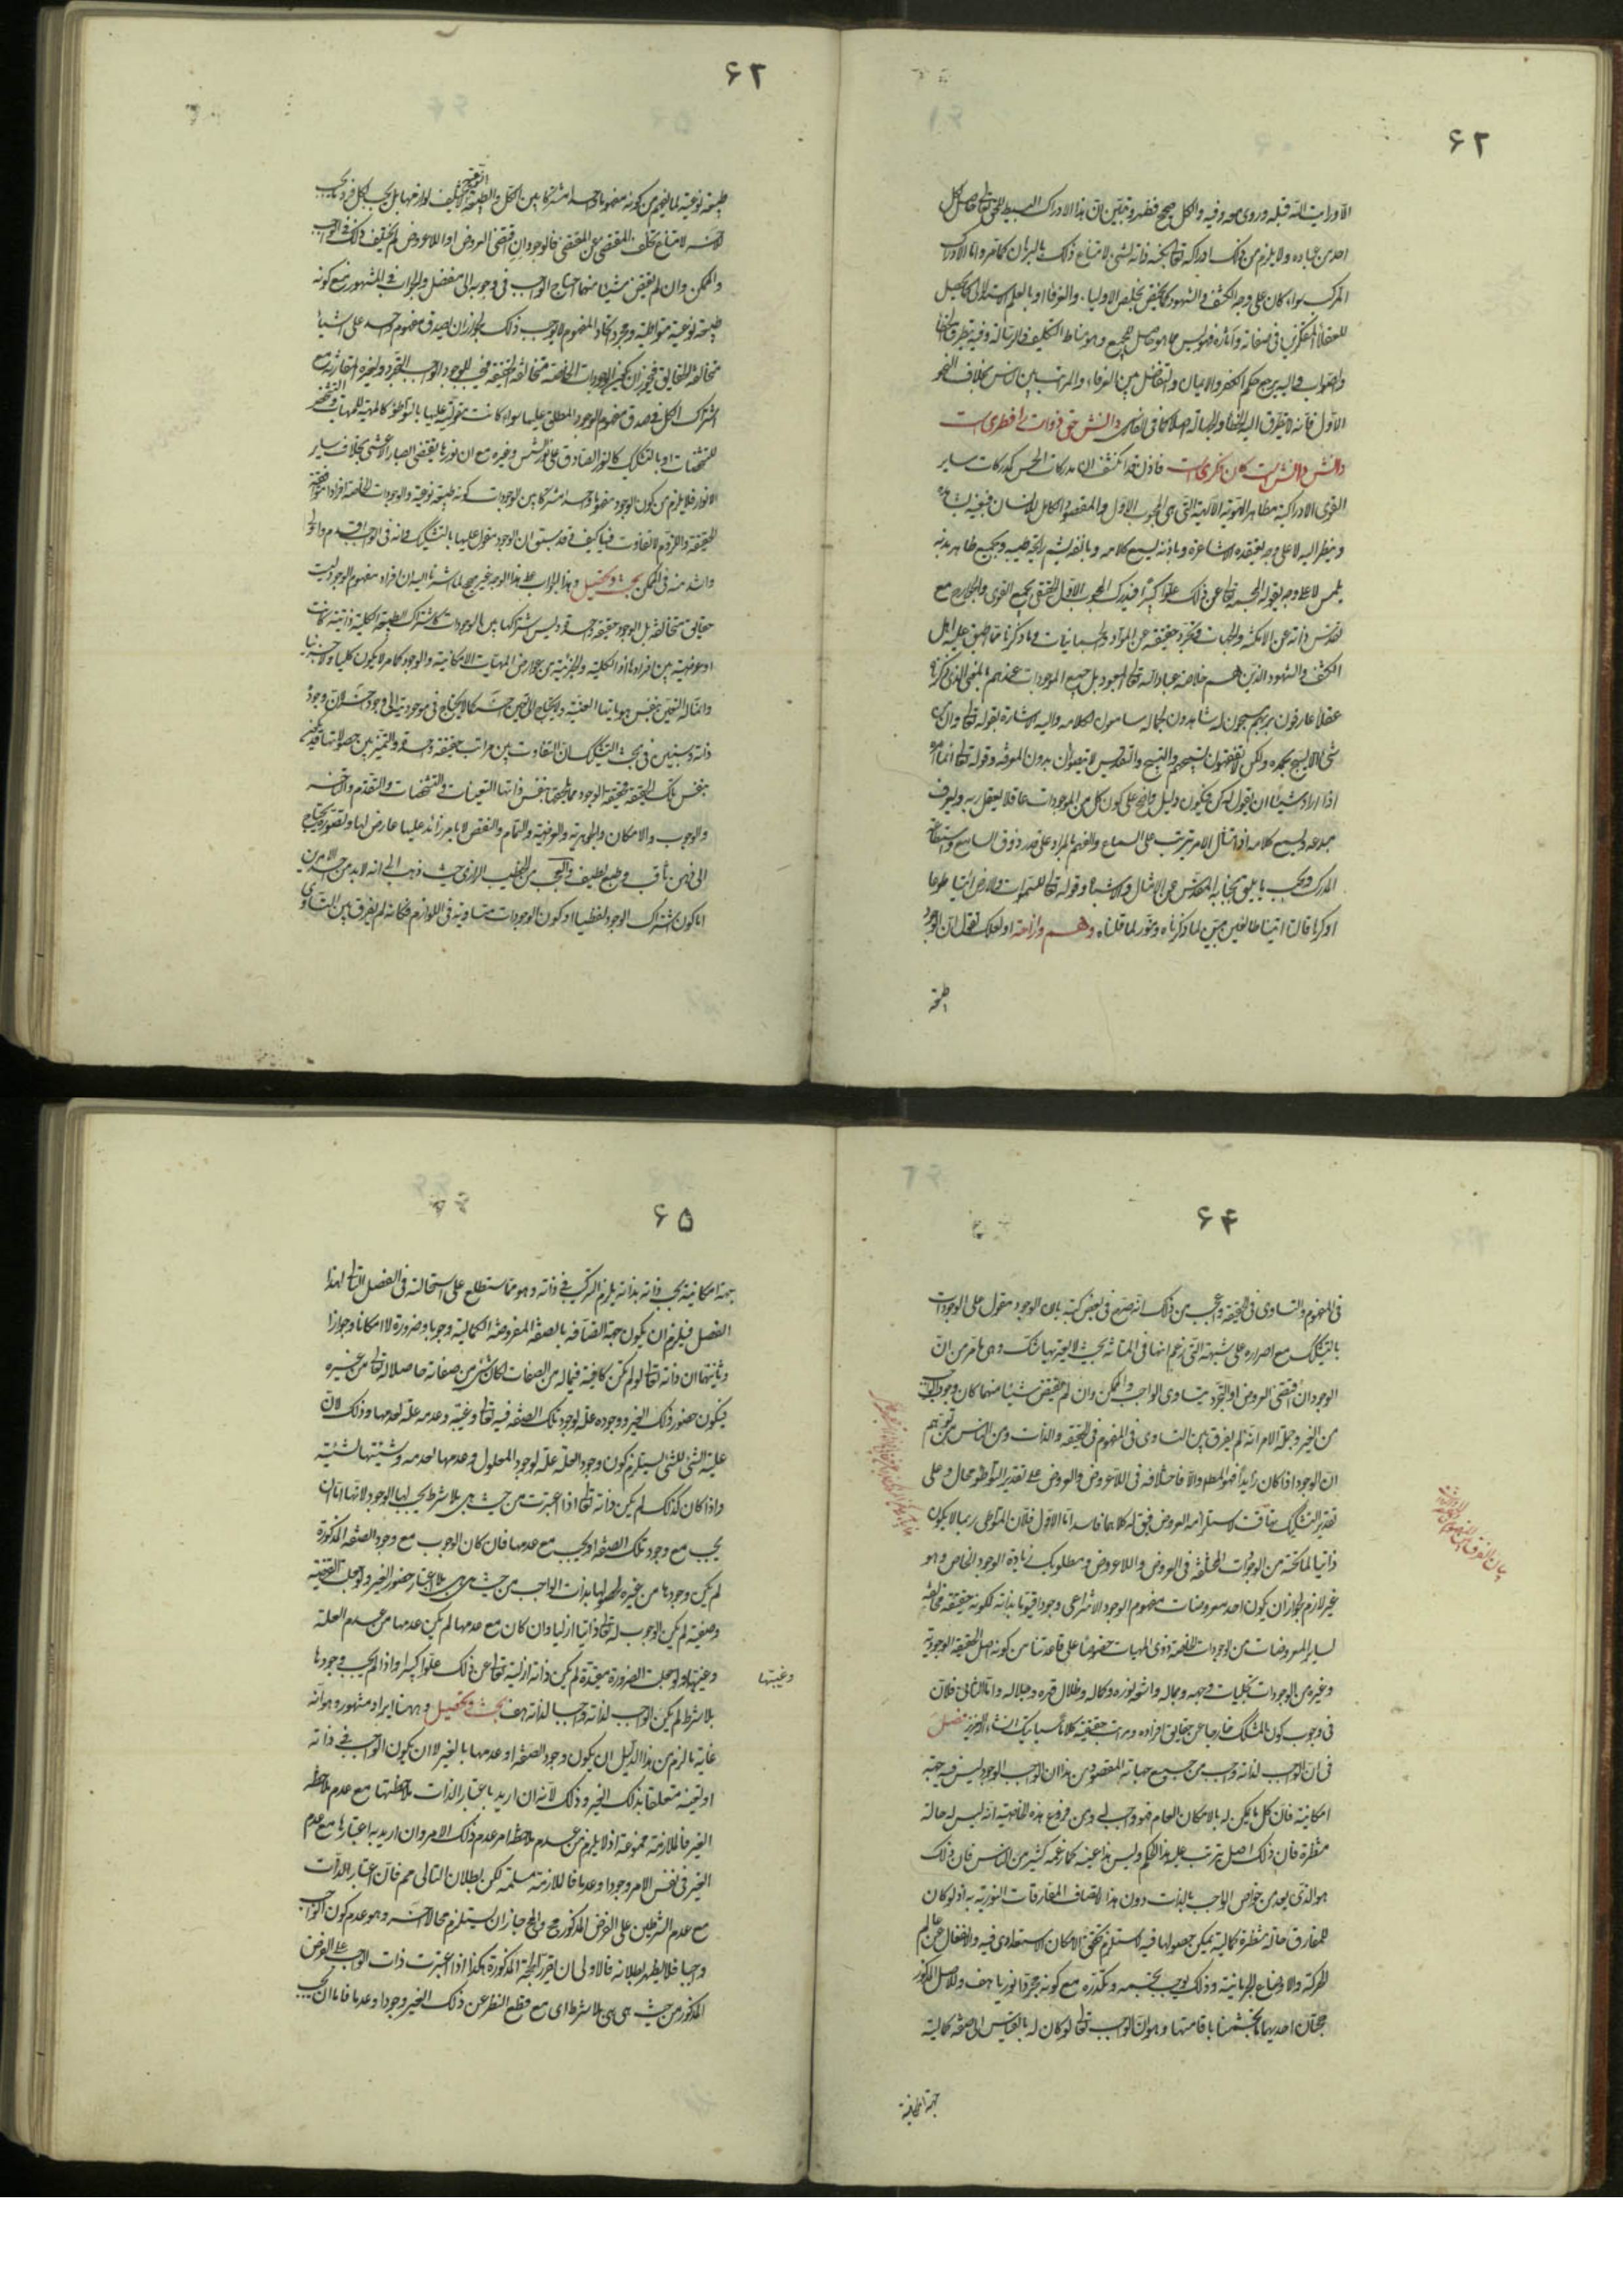 ۶۲
الا ورایت الله قبله وروی معه وفیه والکل صحیح فظهر وتبین ان هذا الادراک البسیط للحق تعالی حاصل لکل
احد من عباده ولا یلزم من ذلک ادراکه تعالی بکنه ذاته لشیء لامتناع ذلک بالبرهان کما مر واما الادراک
المرکب سواء کان علی وجه الکشف والشهود کما یختص بخلص الاولیاء والعرفاء او بالعلم الاستدلالی کما یحصل
للعقلاء المتفکرین فی صفاته وآثاره فهو لیس مما هو حاصل للجمیع وهو مناط التکلیف والرسالة وفیه یتطرق الخطاء
والصواب والیه یرجع حکم الکفر والایمان والتفاضل بین العرفاء والمراتب بین الناس بخلاف النحو
الاول فانه لا یتطرق الیه الخطاء والجهالة اصلا کما فی الفارسی دانش حق ذوات را فطری است
دانش دانش است کان فکری است فاذن قد انکشف ان مدرکات الخمس کمدرکات سایر
القوی الادراکیة مظاهر الهویة الالهیة التی هی المحبوب الاول والمقصود الکامل للانسان فبعینه یشاهده
وینظر الیه لا علی وجه یعتقده الاشاعرة وباذنه یسمع کلامه وبانفه یشم رایحة طیبه وبجمیع ظاهر بدنه
یلمس لا علی وجه یقوله المجسمة تعالی عن ذلک علوا کبیرا فیدرک المحبوب الاول الحقیقی بجمیع القوی والجوارح مع
تقدس ذاته عن الامکنة والجهات وتجرد حقیقته عن المواد والجسمانیات وما ذکرناه مما اطبق علیه اهل
الکشف والشهود الذین هم خلاصة عباد الله تعالی المعبود بل جمیع الموجودات عندهم بالمعنی الذی ذکرناه
عقلاء عارفون بربهم مسبحون له شاهدون لجماله سامعون لکلامه والیه الاشارة بقوله تعالی وان من
شیء الا یسبح بحمده ولکن لا تفقهون تسبیحهم والتسبیح والتقدیس لا یتصوران بدون المعرفة وقوله تعالی انما امره
اذا اراد شیئا ان یقول له کن فیکون دلیل واضح علی کون کل من الموجودات عاقلا یعقل ربه ویعرف
مبدعه ویسمع کلامه اذ امتثال الامر یترتب علی السماع والفهم بالمراد علی قدر ذوق السامع واستطاعة
المدرک وبحسب ما یلیق بجنابه المقدس عن الامثال والاشباه وقوله تعالی للسموات والارض ائتیا طوعا
او کرها قالتا اتینا طائعین مبین لما ذکرناه ومنور لما قلناه وهم وازاحة او لعلک تقول ان الوجود
طبیعة
۶۲
طبیعة نوعیة لما یفهم من کونه مفهوما واحدا مشترکا بین الکل والطبیعة النوعیة لا یختلف لوازمها بل یجب لکل فرد ما یجب
للآخر لامتناع تخلف المقتضی عن المقتضی فالوجود ان اقتضی العروض او اللاعروض لم یختلف ذلک فی الواجب
والممکن وان لم یقتض شیئا منهما احتاج الواجب فی وجوبه الی منفصل والجواب فی المشهور منع کونه
طبیعة نوعیة متواطیة ومجرد اتحاد المفهوم لا یوجب ذلک لجواز ان یصدق مفهوم واحد علی اشیاء
متخالفة الحقایق فیجوز ان یکون الوجودات الخاصة متخالفة الحقیقة فیجب للوجود الواجب التجرد ولغیره المقارنة مع
اشتراک الکل فی صدق مفهوم الوجود المطلق علیها سواء کانت مقولیته علیها بالتواطؤ کالمهیة للمهیات والتشخص
للتشخصات او بالتشکیک کالنور الصادق علی نور الشمس وغیره مع ان نورها یقتضی ابصار الاعشی بخلاف سایر
الانوار فلا یلزم من کون الوجود مفهوما واحدا مشترکا بین الوجودات کونه طبیعة نوعیة والوجودات الخاصة افرادا متوافقة
الحقیقة واللزوم لا تفاوت فیها کیف وقد سبق ان الوجود مقول علیها بالتشکیک فانه فی الواجب اقدم واولی
واشد منه فی الممکن بحث وتحصیل وهذا الجواب علی هذا الوجه غیر صحیح لما اشرنا الیه ان افراد مفهوم الوجود لیست
حقایق متخالفة بل الوجود حقیقة واحدة ولیس اشتراکها بین الوجودات کاشتراک الطبیعة الکلیة ذاتیة کانت
او عرضیة بین افرادها اذ الکلیة والجزئیة من عوارض المهیات الامکانیة والوجود کما مر لا یکون کلیا ولا جزئیا
وانما له التعین بنفس هویاتها العینیة ولا یحتاج الی تعین آخر کما لا یحتاج فی موجودیته الی وجود آخر لان وجوده
ذاته وسنبین فی بحث التشکیک ان التفاوت بین مراتب حقیقة واحدة والتمیز بین حصولاتها قد یکون
بنفس تلک الحقیقة فحقیقة الوجود مما یلحقها بنفس ذاتها التعینات والتشخصات والتقدم والتاخر
والوجوب والامکان والجوهریة والعرضیة والتمام والنقص لا بامر زائد علیها عارض لها وتصوره یحتاج
الی ذهن ثاقب وطبع لطیف والعجب من الخطیب الرازی حیث ذهب الی انه لابد من احد الامرین
اما کون اشتراک الوجود لفظیا او کون الوجودات متساویة فی اللوازم فکانه لم یفرق بین التساوی
۶۴
فی المفهوم والتساوی فی الحقیقة واعجب من ذلک انه صرح فی بعض کتبه بان الوجود مقول علی الوجودات
بالتشکیک مع اصراره علی شبهته التی زعم انها فی المتانة بحیث لا یعتریها شک وهی ما مر من ان
الوجود ان اقتضی العروض او التجرد یتساوی الواجب والممکن وان لم یقتض شیئا منهما کان وجوب الواجب
من الغیر وجملة الامر انه لم یفرق بین التساوی فی المفهوم فی الحقیقة والذات ومن الناس من توهم
ان الوجود اذا کان زایدا فهو المطلوب والا فاختلافه فی اللاعروض والعروض علی تقدیر التواطؤ محال وعلی
تقدیر التشکیک تهافت لاستلزامه العروض فیق له کلاهما فاسد اما الاول فلان المتواطی ربما لا یکون
ذاتیا لما تحته من الوجودات المختلفة فی العروض واللاعروض ومطلوبک زیادة الوجود الخاص وهو
غیر لازم لجواز ان یکون احد معروضات مفهوم الوجود الانتزاعی وجودا قیوما بذاته لکونه حقیقة مخالفة
لسایر المعروضات من الوجودات الخاصة ذوی المهیات خصوصا علی قاعدتنا من کونه اصل الحقیقة الوجودیة
وغیره من الوجودات تجلیات وجهه وجماله واشعة نوره وکماله وظلال قهره وجلاله واما الثانی فلان
فی وجوب کون المشکک خارجا عن حقایق افراده ومراتب حقیقته کلاما سیاتیک انشاء الله العزیز فصل
فی ان الواجب لذاته واجب من جمیع جهاته المقصود من هذا ان الواجب الوجود لیس فیه جهة
امکانیة فان کل ما یمکن له بالامکان العام فهو واجب له ومن فروع هذه الخاصیة انه لیس له حالة
منتظرة فان ذلک اصل یترتب علیه هذا الحکم ولیس هذا عینه کما زعمه کثیر من الناس فان ذلک
هو الذی یعد من خواص الواجب بالذات دون هذا لاتصاف المفارقات النوریة به اذ لو کان
للمفارق حالة منتظرة کمالیة یمکن حصولها فیه لاستلزم تحقق الامکان الاستعدادی فیه والانفعال عن عالم
الحرکة والاوضاع الجرمانیة وذلک یوجب تجسمه وتکدره مع کونه مجردا نوریا هف وللاصل المذکور
حجتان احدیهما ما تجشمنا باقامتها وهو ان الواجب تعالی لو کان له بالقیاس الی صفة کمالیة
جهة امکانیة
۶۵
جهة امکانیة بحسب ذاته بذاته یلزم الترکیب فی ذاته وهو مما ستطلع علی استحالته فی الفصل التالی لهذا
الفصل فیلزم ان یکون جهة اتصافه بالصفة المفروضة الکمالیة وجوبا وضرورة لا امکانا وجوازا
وثانیتهما ان ذاته تعالی لو لم تکن کافیة فیما له من الصفات لکان شیء من صفاته حاصلا له تعالی من غیره
فیکون حضور ذلک الغیر ووجوده علة لوجود تلک الصفة فیه تعالی وغیبته وعدمه علة لعدمها وذلک لان
علیة الشیء للشیء یستلزم کون وجود العلة علة لوجود المعلول وعدمها لعدمه وشیئیتها لشیئیته
واذا کان کذلک لم یکن ذاته تعالی اذا اعتبرت من حیث هی بلا شرط یجب لها الوجود لانها اما ان
یجب مع وجود تلک الصفة او یجب مع عدمها فان کان الوجوب مع وجود الصفة المذکورة
لم یکن وجودها من غیره لحصولها بذات الواجب من حیث هی هی بلا اعتبار حضور الغیر ولو جعلت القضیة
وصفیة لم یکن الوجوب له تعالی ذاتیا ازلیا وان کان مع عدمها لم یکن عدمها من عدم العلة
وغیبتها ولو جعلت الضرورة مقیدة لم یکن ذاته ازلیة تعالی عن ذلک علوا کبیرا واذا لم یجب وجودها
وغیبتها
بلا شرط لم یکن الواجب لذاته واجبا لذاته هف بحث وتحصیل وههنا ایراد مشهور وهو انه
غایة ما لزم من هذا الدلیل ان یکون وجود الصفة او عدمها بالغیر لا ان یکون الواجب فی ذاته
او تعینه متعلقا بذلک الغیر وذلک لانه ان ارید باعتبار الذات ملاحظتها مع عدم ملاحظة
الغیر فالملازمة ممنوعة اذ لا یلزم من عدم ملاحظة امر عدم ذلک الامر وان ارید به اعتبارها مع عدم
الغیر فی نفس الامر وجودا وعدما فالملازمة مسلمة لکن بطلان التالی مم فان اعتبار الذات
مع عدم الشرطین علی الفرض المذکور مح والمح جاز ان یستلزم محالا آخر وهو عدم کون الواجب
واجبا فلا یظهر بطلانه فالاولی ان تقرر الحجة المذکورة هکذا اذا اعتبرت ذات الواجب علی الفرض
المذکور من حیث هی هی بلا شرط ای مع قطع النظر عن ذلک الغیر وجودا وعدما فاما ان یجب